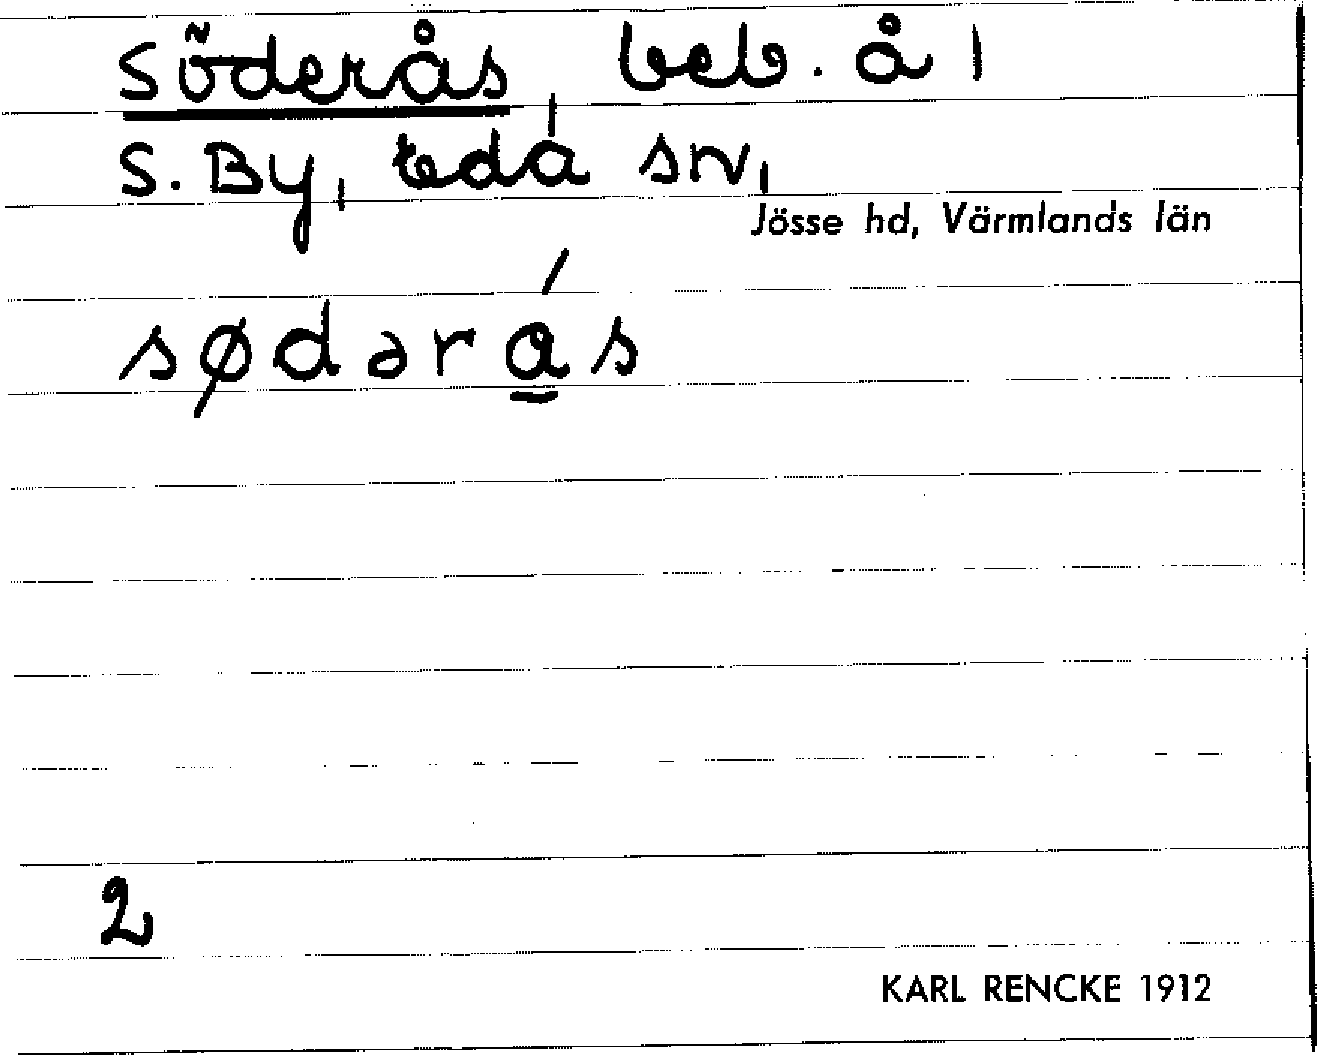 Söderås, beb. å 1
S. By, Eda sn,
Jösse hd, Värmlands län
sødəra̲s
2
KARL RENCKE 1912